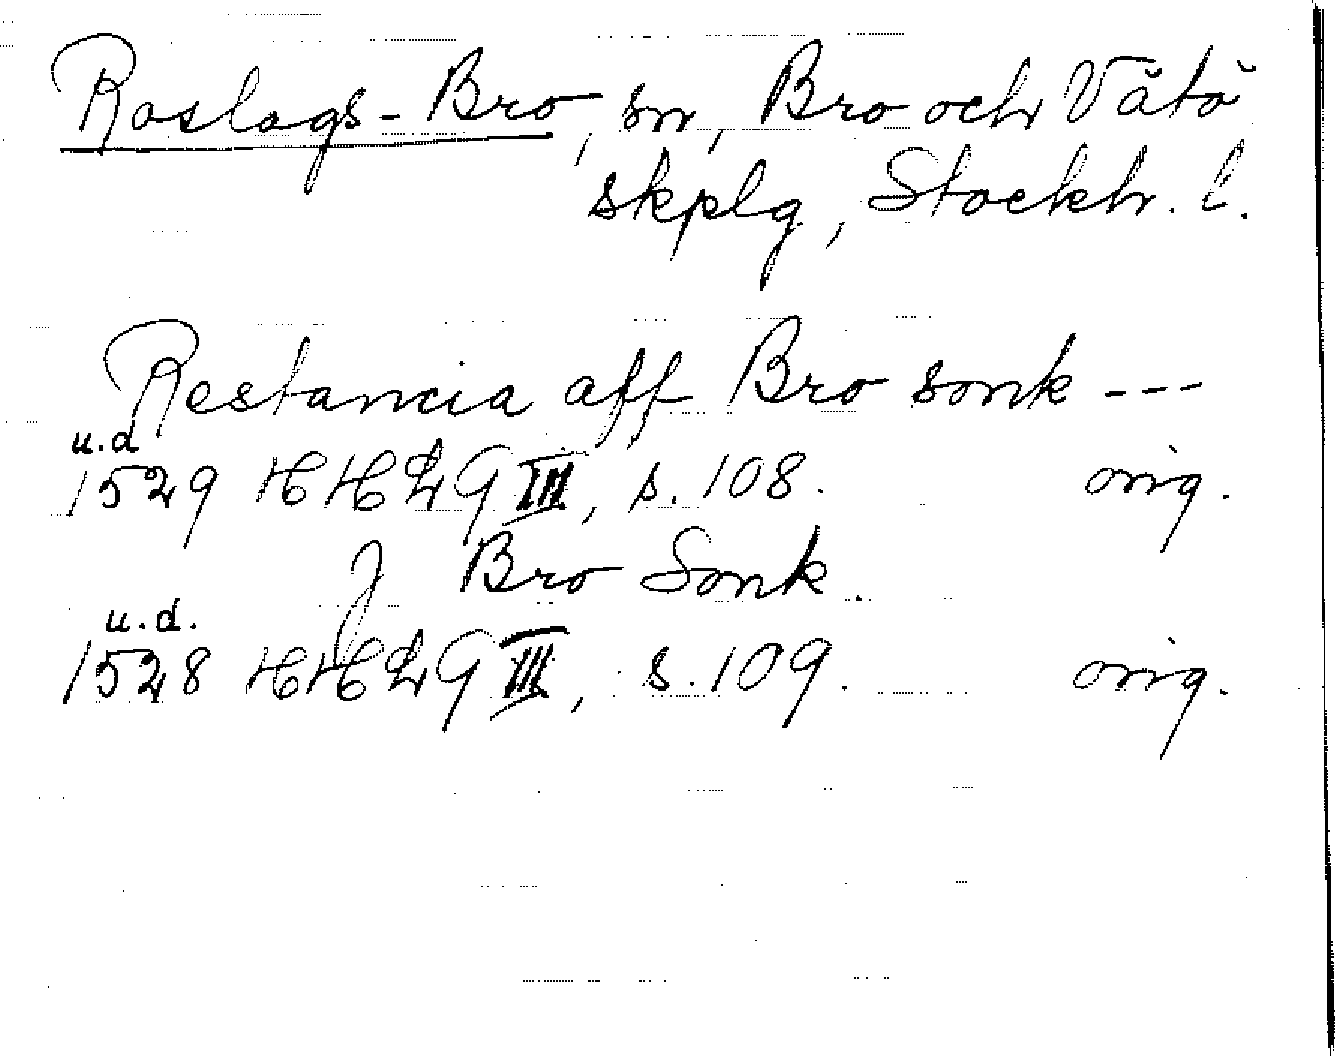 Roslags-Bro, sn, Bro och Vätö
skplg, Stockh. l.
Restancia aff Bro sonk ---
u.d
1529 HHLG III, s. 108. orig.
J Bro Sonk.
u.d.
1528 HHLG III, s. 109. orig.